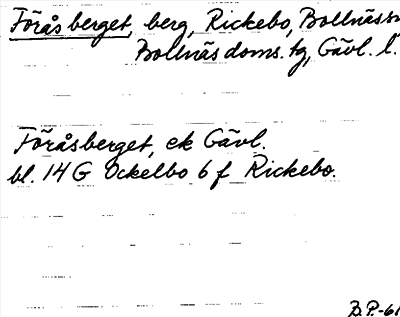 Föråsberget, berg, Rickebo, Bollnäs sn
Bollnäs doms. tg, Gävl. l.
Föråsberget, ek Gävl.
bl. 14 G Ockelbo 6 f Rickebo.
B.P.-61